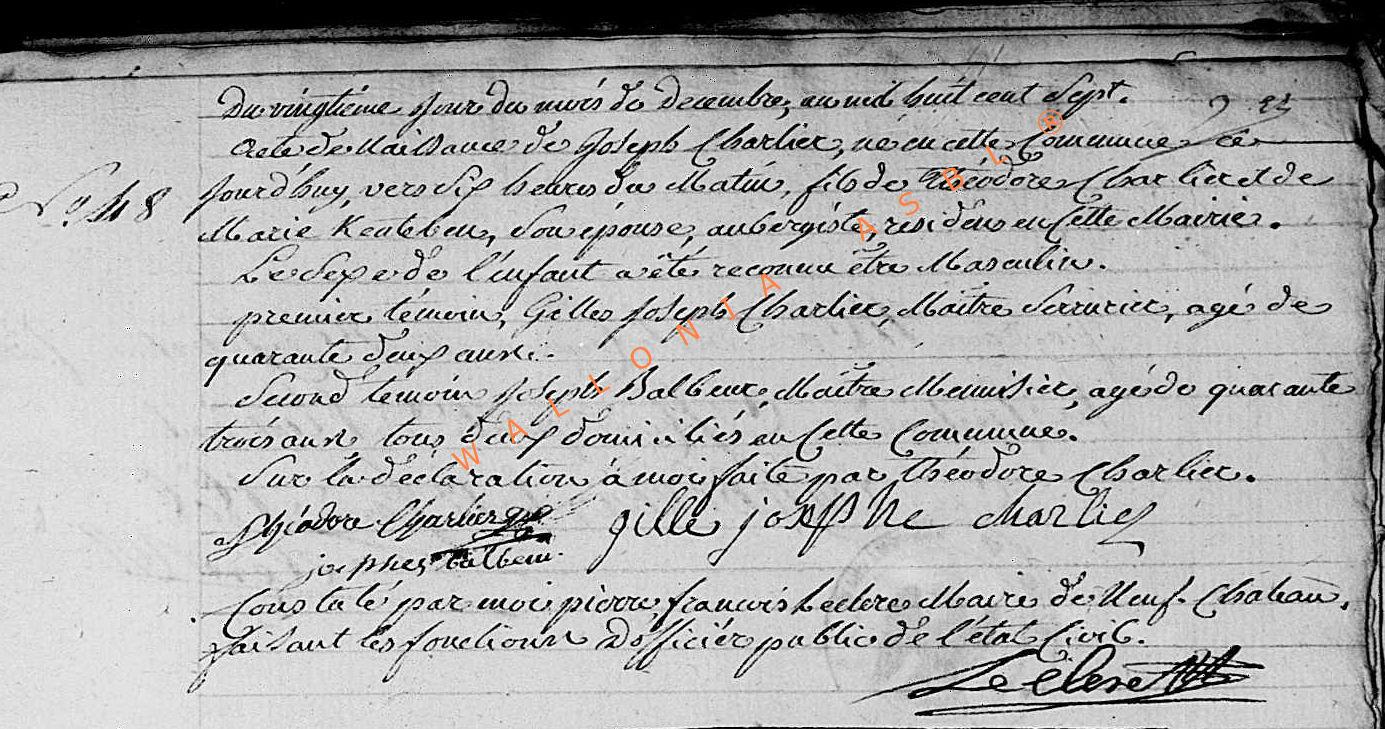 Du vingtième Jour du mois de Decembre, an mil huit cent Sept.
Acte de Naissance de Joseph Charlier, né en cette Commune ce
N.° 48
jourd'huy, vers Six heures du Matin, fils de Théodore Charlier et de
Marie, Son épouse, aubergiste, residens en Cette Mairie.
Le Sexe de l'enfant a été reconnu être Masculin.
premier témoin, Gilles Joseph Charlier, Maître Serrurier, agé de
quarante deux ans.
Second temoin Joseph Balbeur, Maître Menuisier, agé de quarante
trois ans tous deux domiciliés en Cette Commune.
Sur la déclaration à moi faite par Théodore Charlier.
Théodore Charlier gille josephe charlier
balbeur
Constaté par moi pierre françois Leclerc Maire de Neuf-Château,
faisant les fonctions D'officier public de l'état Civil.
Leclerc
WALLONIA ASBL ®